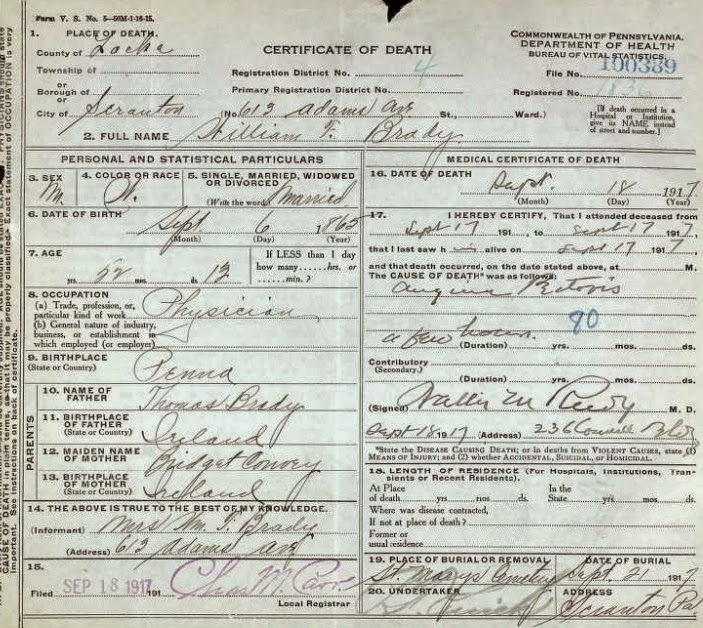 Form V. S. No. 5—50M-1-16-15.
1. PLACE OF DEATH.
County of Lacka
Township of
or
Borough of
or
City of Scranton
CERTIFICATE OF DEATH
Registration District No. 4
Primary Registration District No.
(No. 613 Adams Ave St., Ward.)
COMMONWEALTH OF PENNSYLVANIA.
DEPARTMENT OF HEALTH
BUREAU OF VITAL STATISTICS.
File No. 100389
Registered No.
[If death occurred in a
Hospital or Institution,
give its NAME instead
of street and number.]
2. FULL NAME William F. Brady
PERSONAL AND STATISTICAL PARTICULARS
3. SEX
M.
4. COLOR OR RACE
W.
5. SINGLE, MARRIED, WIDOWED
OR DIVORCED
(Write the word) Married
6. DATE OF BIRTH
Sept. 6 1865
(Month) (Day) (Year)
7. AGE
52 yrs. mos. 12 ds.
If LESS than 1 day
how many......hrs. or
......min.?
8. OCCUPATION
(a) Trade, profession, or,
particular kind of work Physician
(b) General nature of industry,
business, or establishment in
which employed (or employer)
9. BIRTHPLACE
(State or Country) Penna
PARENTS
10. NAME OF
FATHER Thomas Brady
11. BIRTHPLACE
OF FATHER
(State or Country) Ireland
12. MAIDEN NAME
OF MOTHER Bridget Conory
13. BIRTHPLACE
OF MOTHER
(State or Country) Ireland
14. THE ABOVE IS TRUE TO THE BEST OF MY KNOWLEDGE.
(Informant) Mrs Wm. F. Brady
(Address) 613 Adams Ave
15.
Filed SEP 18 1917 191
Local Registrar
MEDICAL CERTIFICATE OF DEATH
16. DATE OF DEATH
Sept. 18 1917
(Month) (Day) (Year)
17. I HEREBY CERTIFY, That I attended deceased from
Sept 17 191 , to Sept 17 1917
that I last saw h im alive on Sept 17 1917
and that death occurred, on the date stated above, at M.
The CAUSE OF DEATH* was as follows:
Angina Pectoris
90
a few hours
(Duration) yrs. mos. ds.
Contributory
(Secondary.)
(Duration) yrs. mos. ds.
(Signed) M. D.
Sept 18 1917 (Address) 236 Connell Bldg
*State the DISEASE CAUSING DEATH; or in deaths from VIOLENT CAUSES, state (1)
MEANS OF INJURY; and (2) whether ACCIDENTAL, SUICIDAL, or HOMICIDAL.
18. LENGTH OF RESIDENCE (For Hospitals, Institutions, Tran-
sients or Recent Residents).
At Place
of death yrs. mos. ds.
In the
State yrs. mos. ds.
Where was disease contracted,
If not at place of death?
Former or
usual residence
19. PLACE OF BURIAL OR REMOVAL
St. Marys Cemetery
DATE OF BURIAL
Sept. 21 1917
20. UNDERTAKER
ADDRESS
Scranton Pa
CAUSE OF DEATH in plain terms, so that it may be properly classified. Exact statement of OCCUPATION is very
important. See instructions on back of certificate.